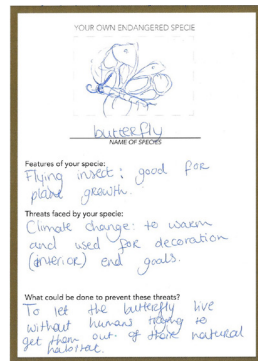 YOUR OWN ENDANGERED SPECIE
butterfly
NAME OF SPECIES
Features of your specie:
Flying insect; good for
plant growth.
Threats faced by your specie:
Climate change: to warm
and used for decoration
(interior) end goals.
What could be done to prevent these threats?
To let the butterfly live
without humans trying to
get them out of there natural
habitat.